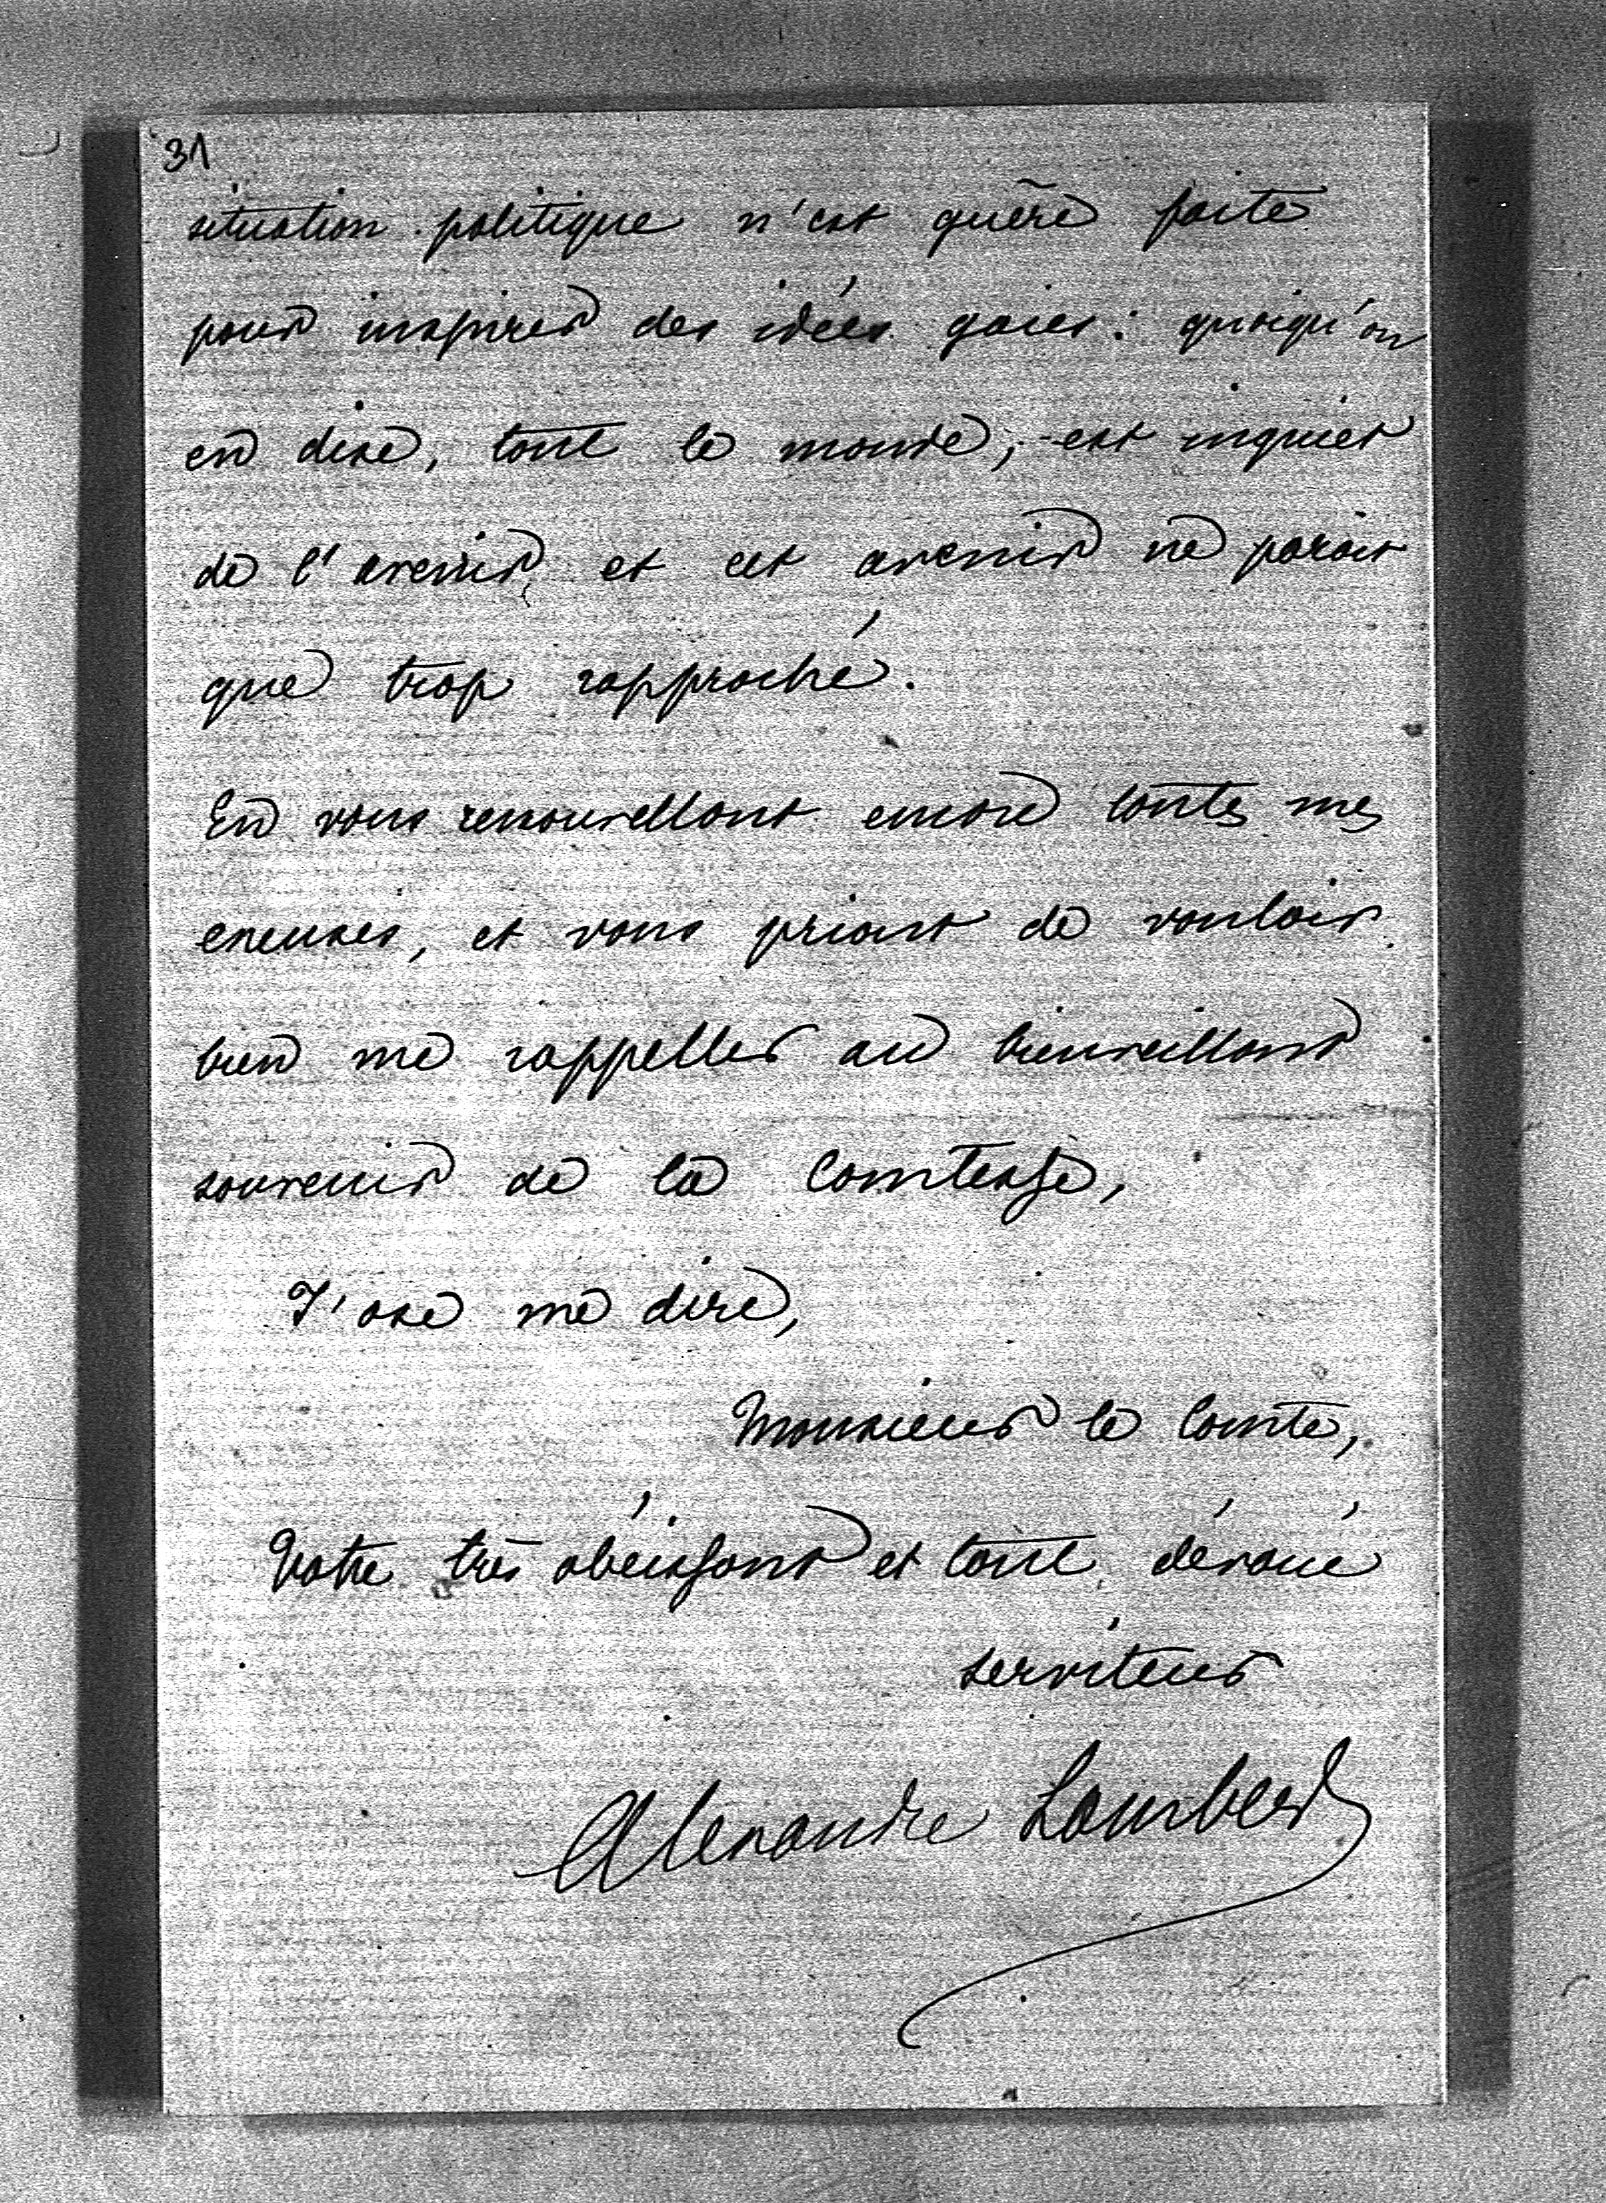 31
situation politique n'est guère faite
pour inspirer des idées gaies : quoiqu'on
en dise, tout le monde, est inquiet
de l'avenir, et cet avenir ne parait
que trop rapproché.
En vous renouvellant encore toutes mes
excuses, et vous priant de vouloir
bien me rappeller au bienveillant
souvenir de la Comtesse,
J'ose me dire,
Monsieur le Comte,
Votre très obéissant et tout dévoué
serviteur
Alexandre Lambert